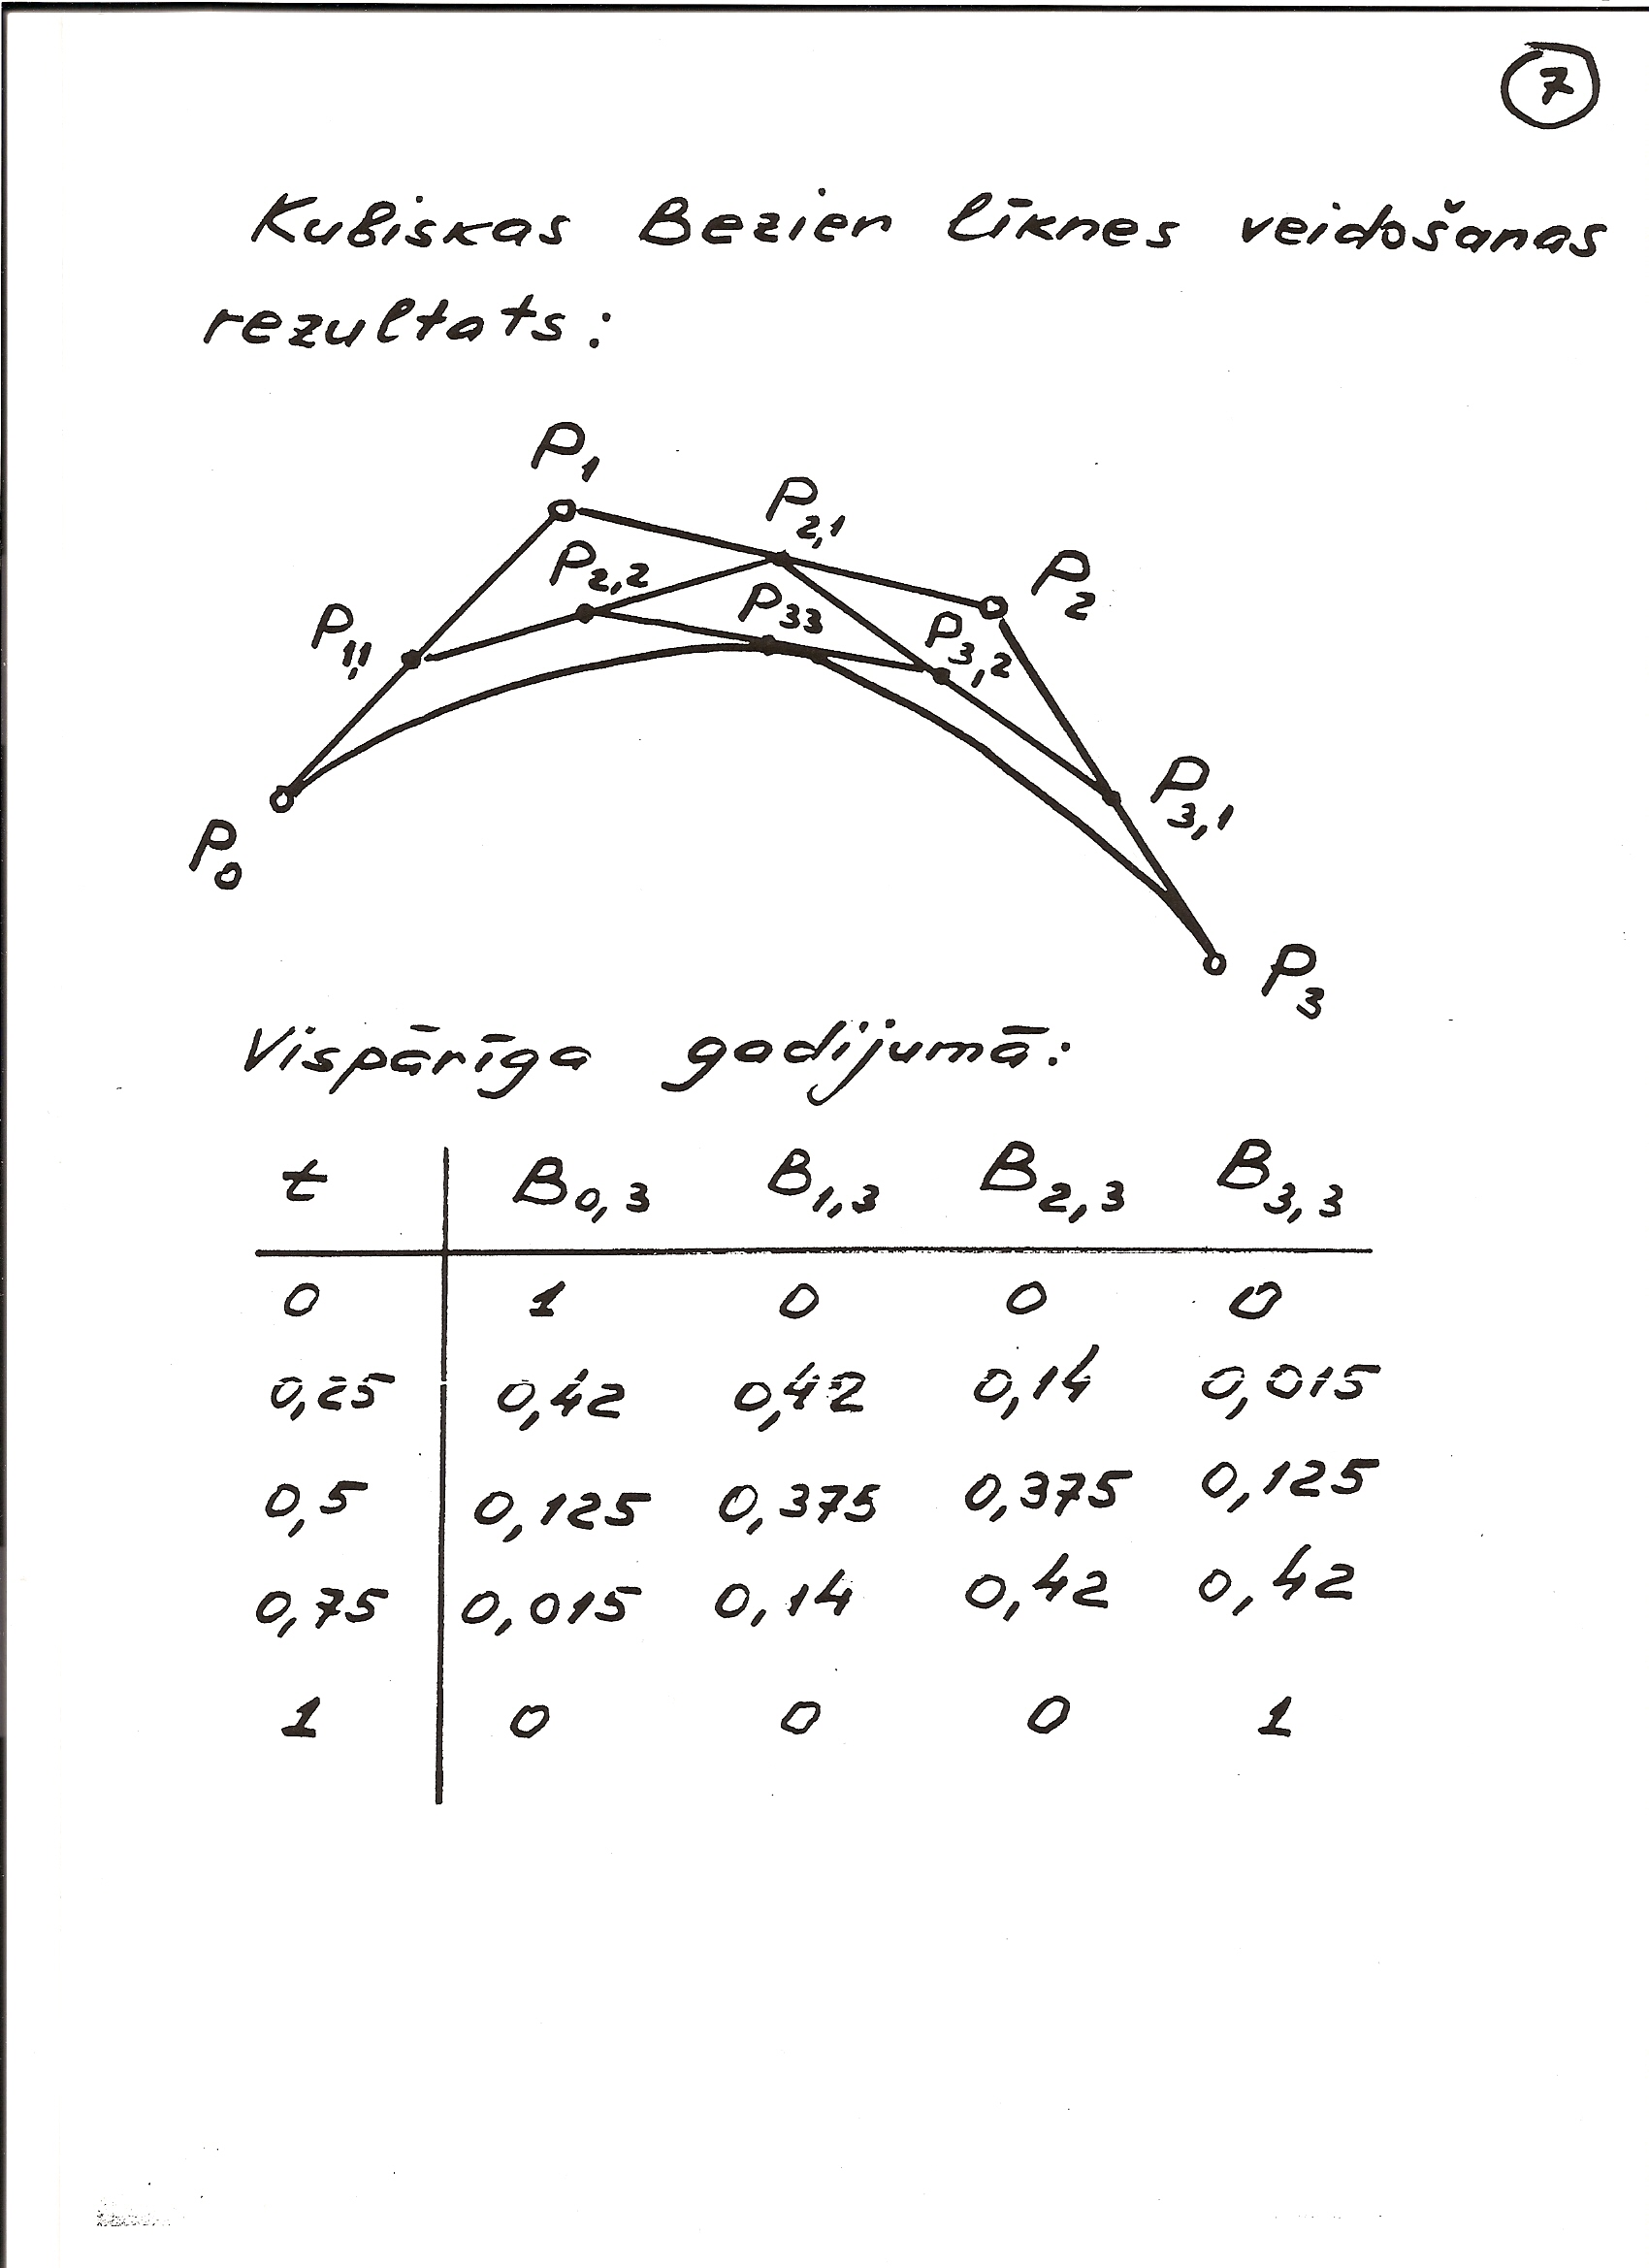 7
Kubiskas Bezier līknes veidošanas
rezultats:
P1
P2,1
P2,2
P2
P33
P1,1
P3,2
P3,1
P0
P3
Vispārīga gadijumā:
t B0,3 B1,3 B2,3 B3,3
0 1 0 0 0
0,25 0,42 0,42 0,14 0,015
0,5 0,125 0,375 0,375 0,125
0,75 0,015 0,14 0,42 0,42
1 0 0 0 1